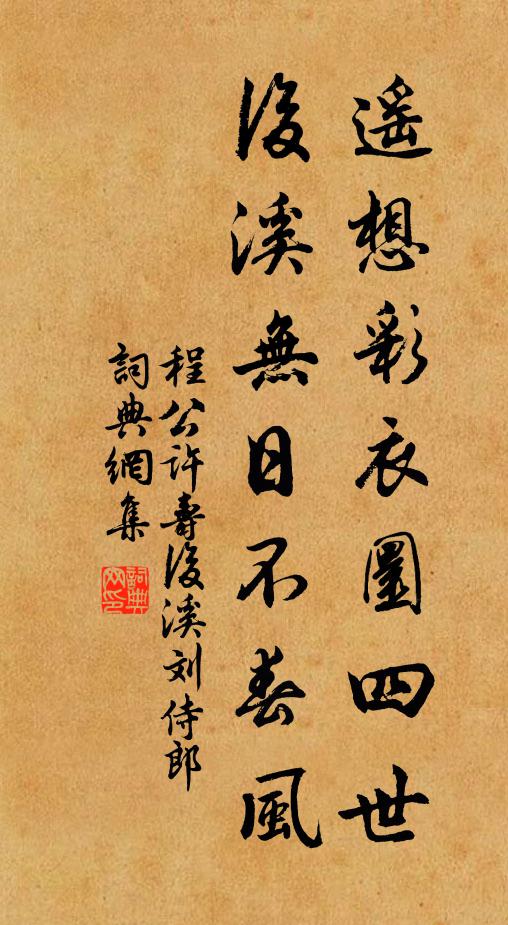 遥想彩衣圖四世
後溪無日不春風
程公許壽後溪刘侍郎
詞典網集
詞典网印